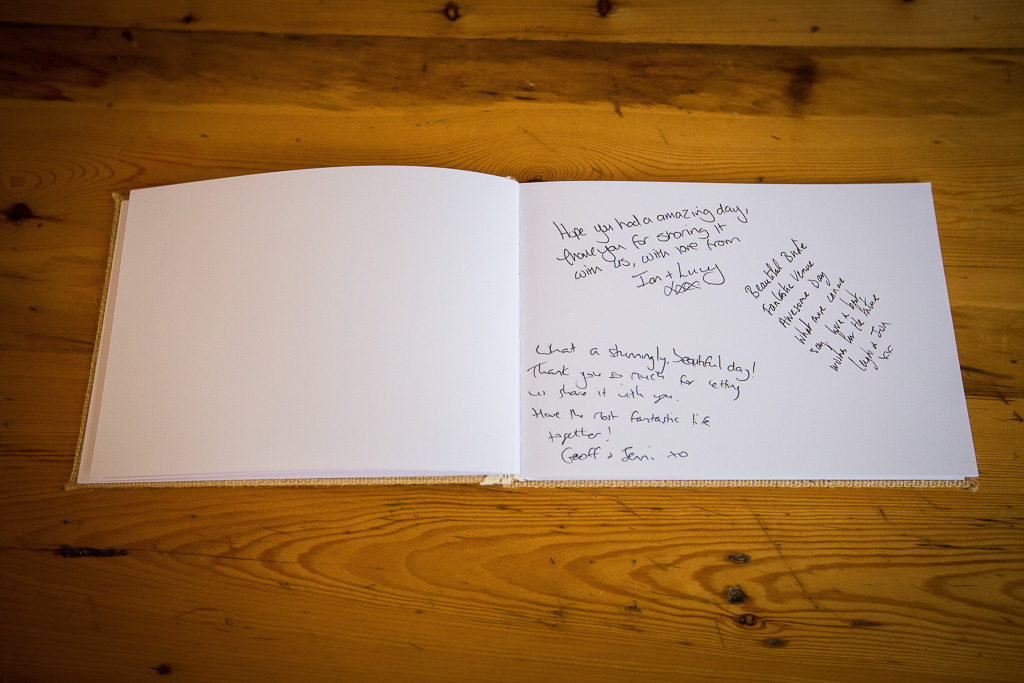 Hope you had a amazing day,
thank you for sharing it
with us, with love from
Ian + Lucy
xxxx
Beautiful Bride
Fantastic Venue
Awesome Day
What more can we
say have a best
wishes for the future
Leigh & Jon
xxx
What a stunningly beautiful day!
Thank you so much for letting
us share it with you.
Have the most fantastic life
together!
Geoff & Jenni xo